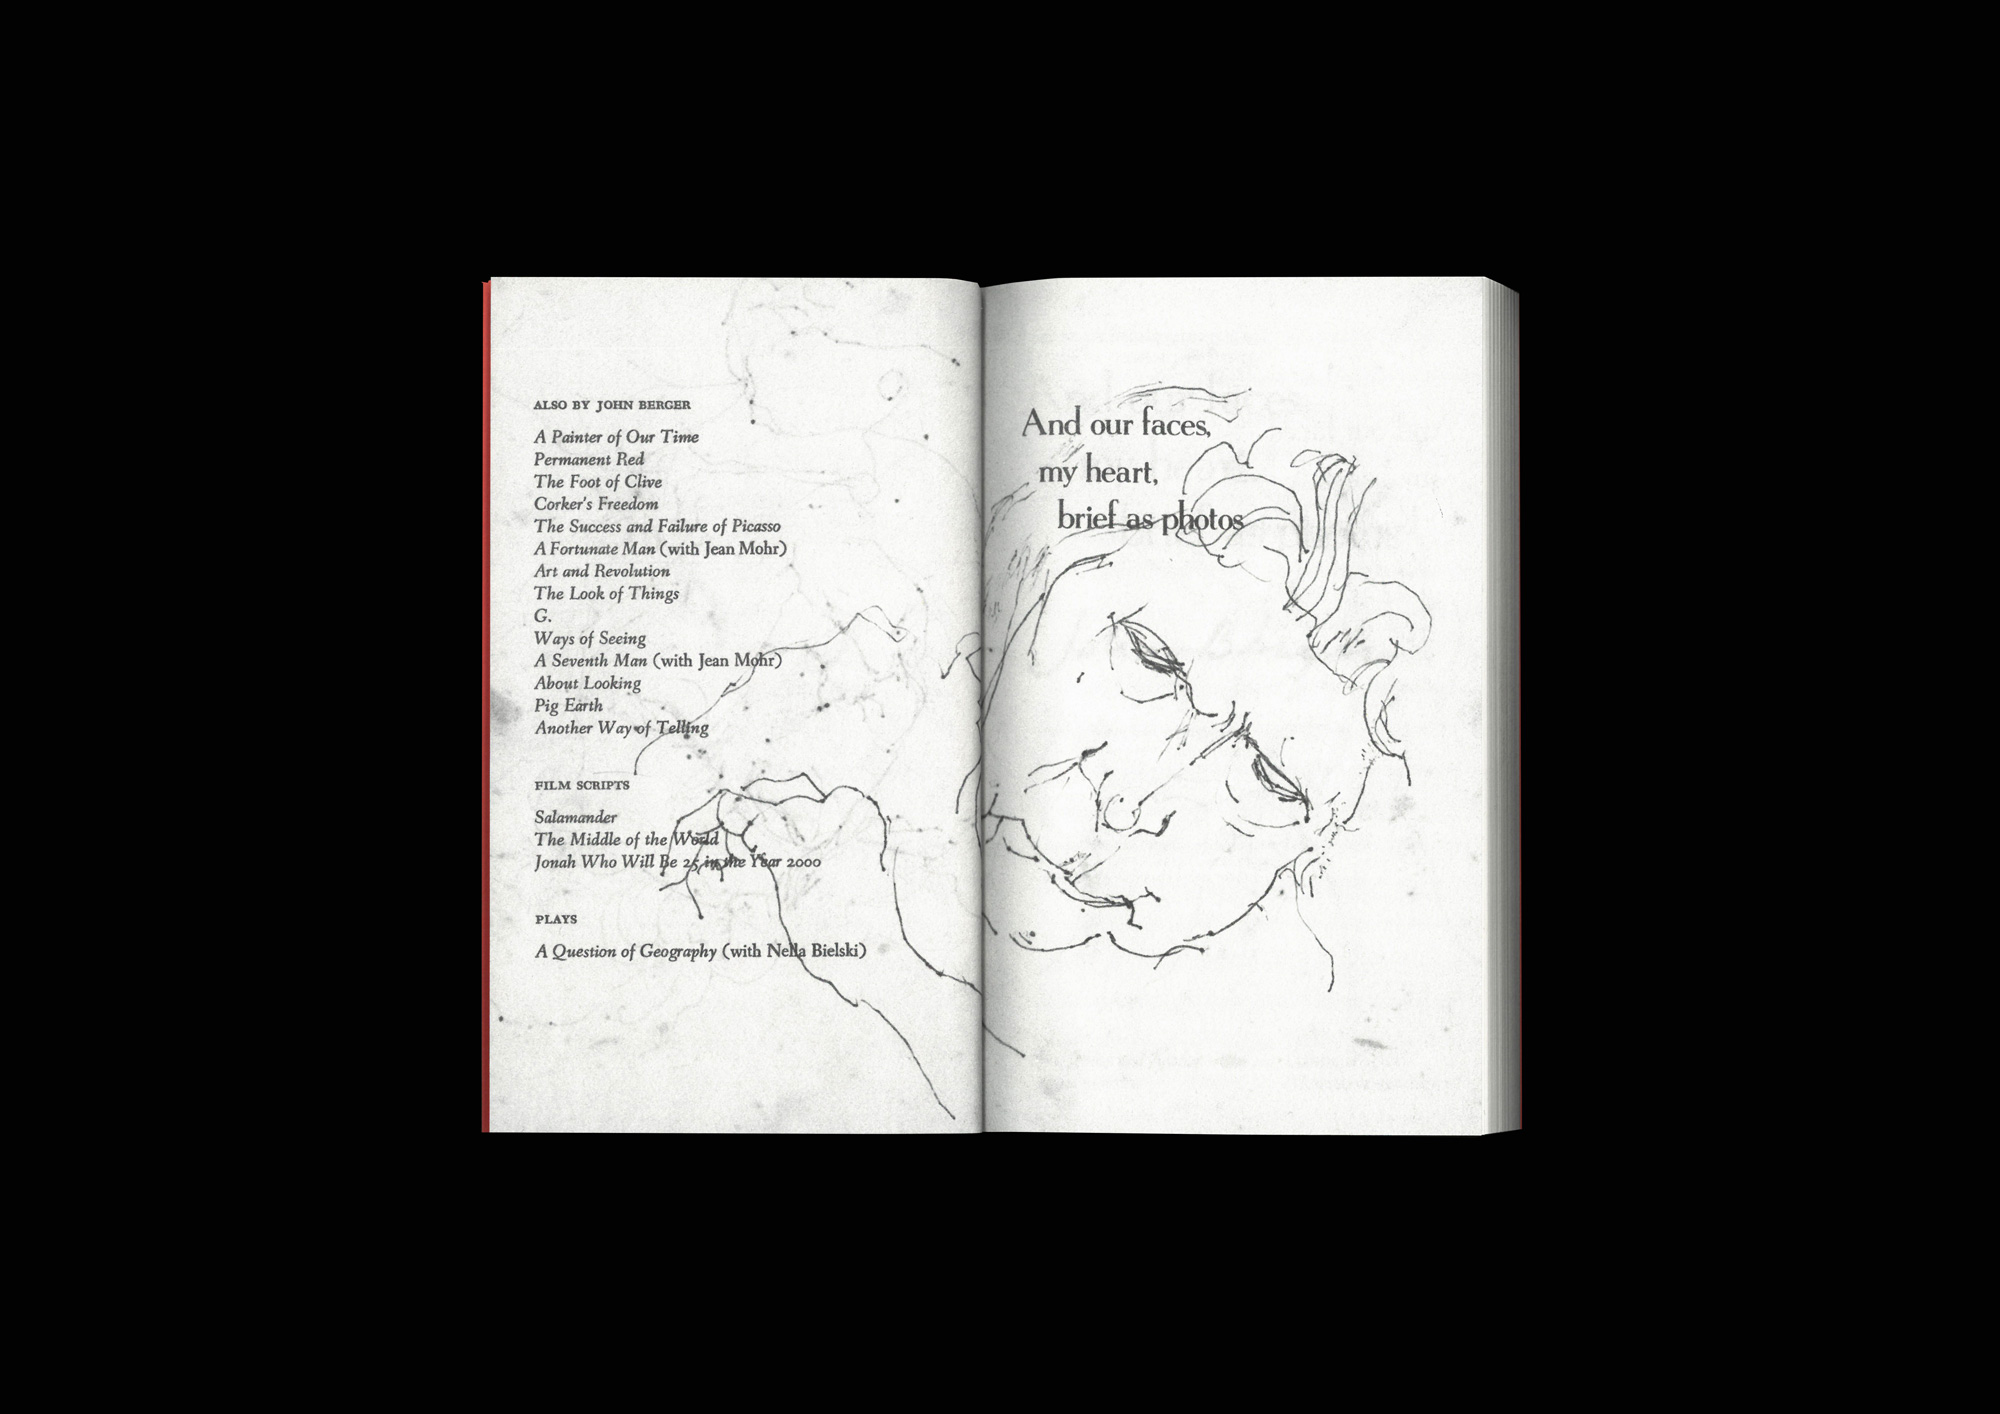 ALSO BY JOHN BERGER
A Painter of Our Time
Permanent Red
The Foot of Clive
Corker's Freedom
The Success and Failure of Picasso
A Fortunate Man (with Jean Mohr)
Art and Revolution
The Look of Things
G.
Ways of Seeing
A Seventh Man (with Jean Mohr)
About Looking
Pig Earth
Another Way of Telling
FILM SCRIPTS
Salamander
The Middle of the World
Jonah Who Will Be 25 in the Year 2000
PLAYS
A Question of Geography (with Nella Bielski)
And our faces,
my heart,
brief as photos